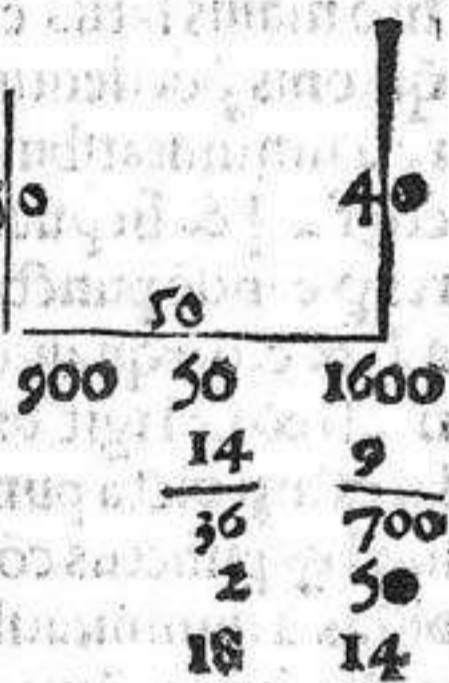 30 40
50
900 50 1600
14 9
36 700
2 50
18 14